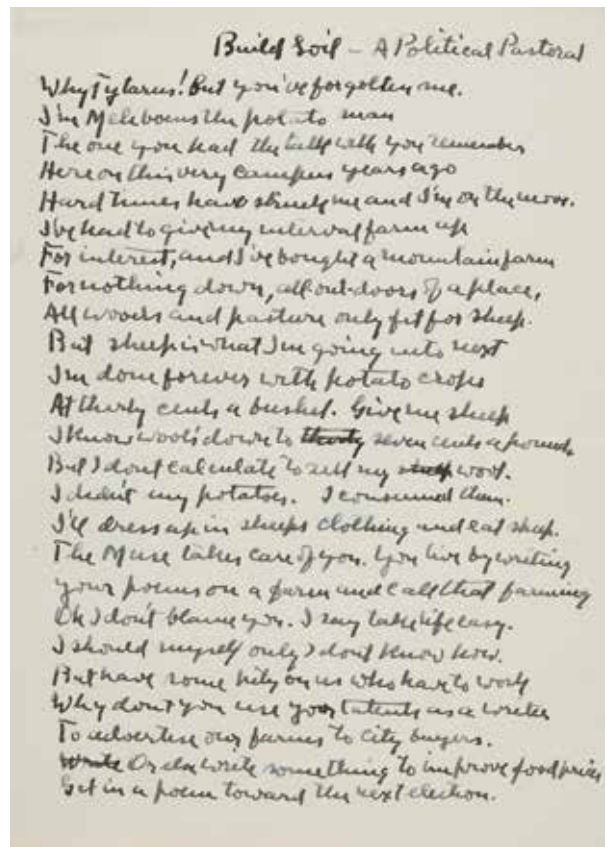 Build Soil – A Political Pastoral
Why Tytarus! But you've forgotten me.
I'm Meliboeus the potato man
The one you had the talk with you remember
Here on this very campus years ago
Hard times have struck me and I'm on the move.
I've had to give my interval farm up
For interest, and I've bought a mountain farm
For nothing down, all-out-doors of a place,
All woods and pasture only fit for sheep.
But sheep is what I'm going into next
I'm done forever with potato crops
At thirty cents a bushel. Give me sheep
I know wool's down to thirty seven cents a pound
But I dont calculate to sell my wool.
I didn't my potatoes. I consumed them.
I'll dress up in sheeps clothing and eat sheep.
The Muse takes care of you. You live by writing
your poems on a farm and call that farming
Oh I don't blame you. I say take life easy.
I should myself only I dont know how.
But have some pity on us who have to work
Why dont you use your talents as a writer
To advertise our farms to city buyers.
Write Or else write something to improve food prices
Get in a poem toward the next election.